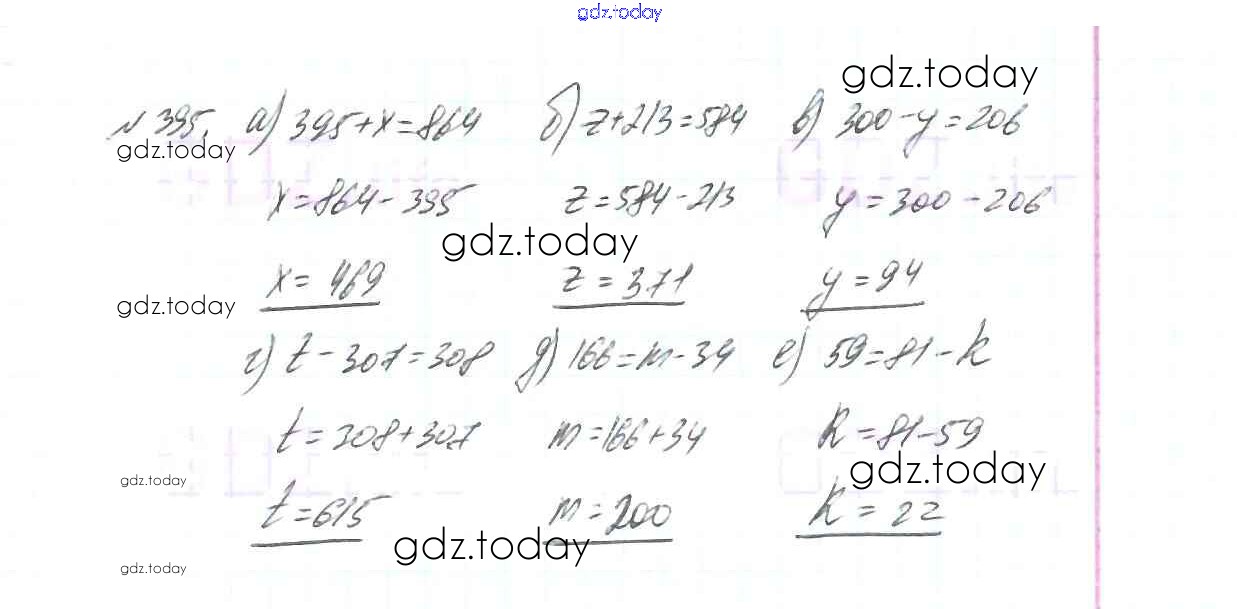 gdz.today
gdz.today
№ 395. а) 395+x=864 б) z+213=584 в) 300-y=206
gdz.today
x=864-395 z=584-213 y=300-206
gdz.today
x=469 z=371 y=94
gdz.today
г) t-307=308 д) 166=m-34 е) 59=81-k
t=308+307 m=166+34 k=81-59
gdz.today
gdz.today
t=615 m=200 k=22
gdz.today
gdz.today